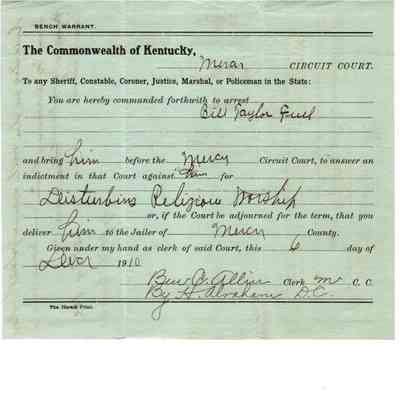 BENCH WARRANT.
The Commonwealth of Kentucky,
Mercer CIRCUIT COURT.
To any Sheriff, Constable, Coroner, Justice, Marshal, or Policeman in the State:
You are hereby commanded forthwith to arrest
Bill Taylor
and bring him before the Mercer Circuit Court, to answer an
indictment in that Court against him for
Deisturbins Religious Worship
or, if the Court be adjourned for the term, that you
deliver him to the Jailer of Mercer County.
Given under my hand as clerk of said Court, this 6 day of
1910
Ben C. Allin Clerk M C. C.
By H. D. C.
The Herald Print.